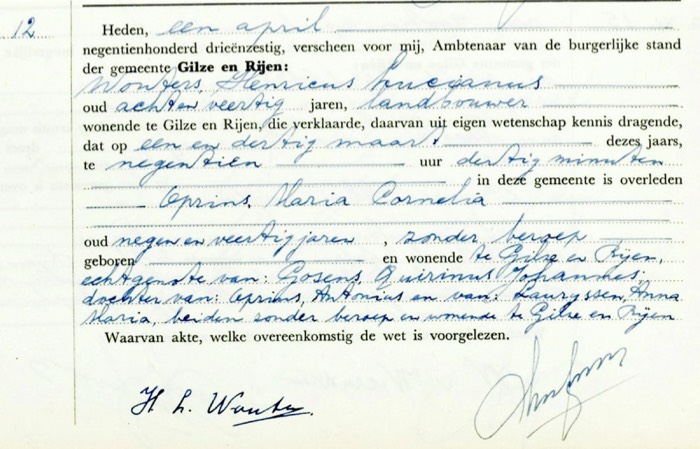 12
Heden, een april
negentienhonderd drieënzestig, verscheen voor mij, Ambtenaar van de burgerlijke stand
der gemeente Gilze en Rijen:
Wouters, Henricus Lucianus
oud achten veertig jaren, landbouwer
wonende te Gilze en Rijen, die verklaarde, daarvan uit eigen wetenschap kennis dragende,
dat op een en dertig maart dezes jaars,
te negentien uur dertig minuten
in deze gemeente is overleden
Oprins, Maria Cornelia
oud negen en veertig jaren, zonder beroep
geboren en wonende te Gilze en Rijen,
echtgenote van: Gosens, Quirinus Johannes;
dochter van: Oprins, Antonius en van: Lauryssen, Anna
Maria, beiden zonder beroep en wonende te Gilze en Rijen
Waarvan akte, welke overeenkomstig de wet is voorgelezen.
H L. Wouters.